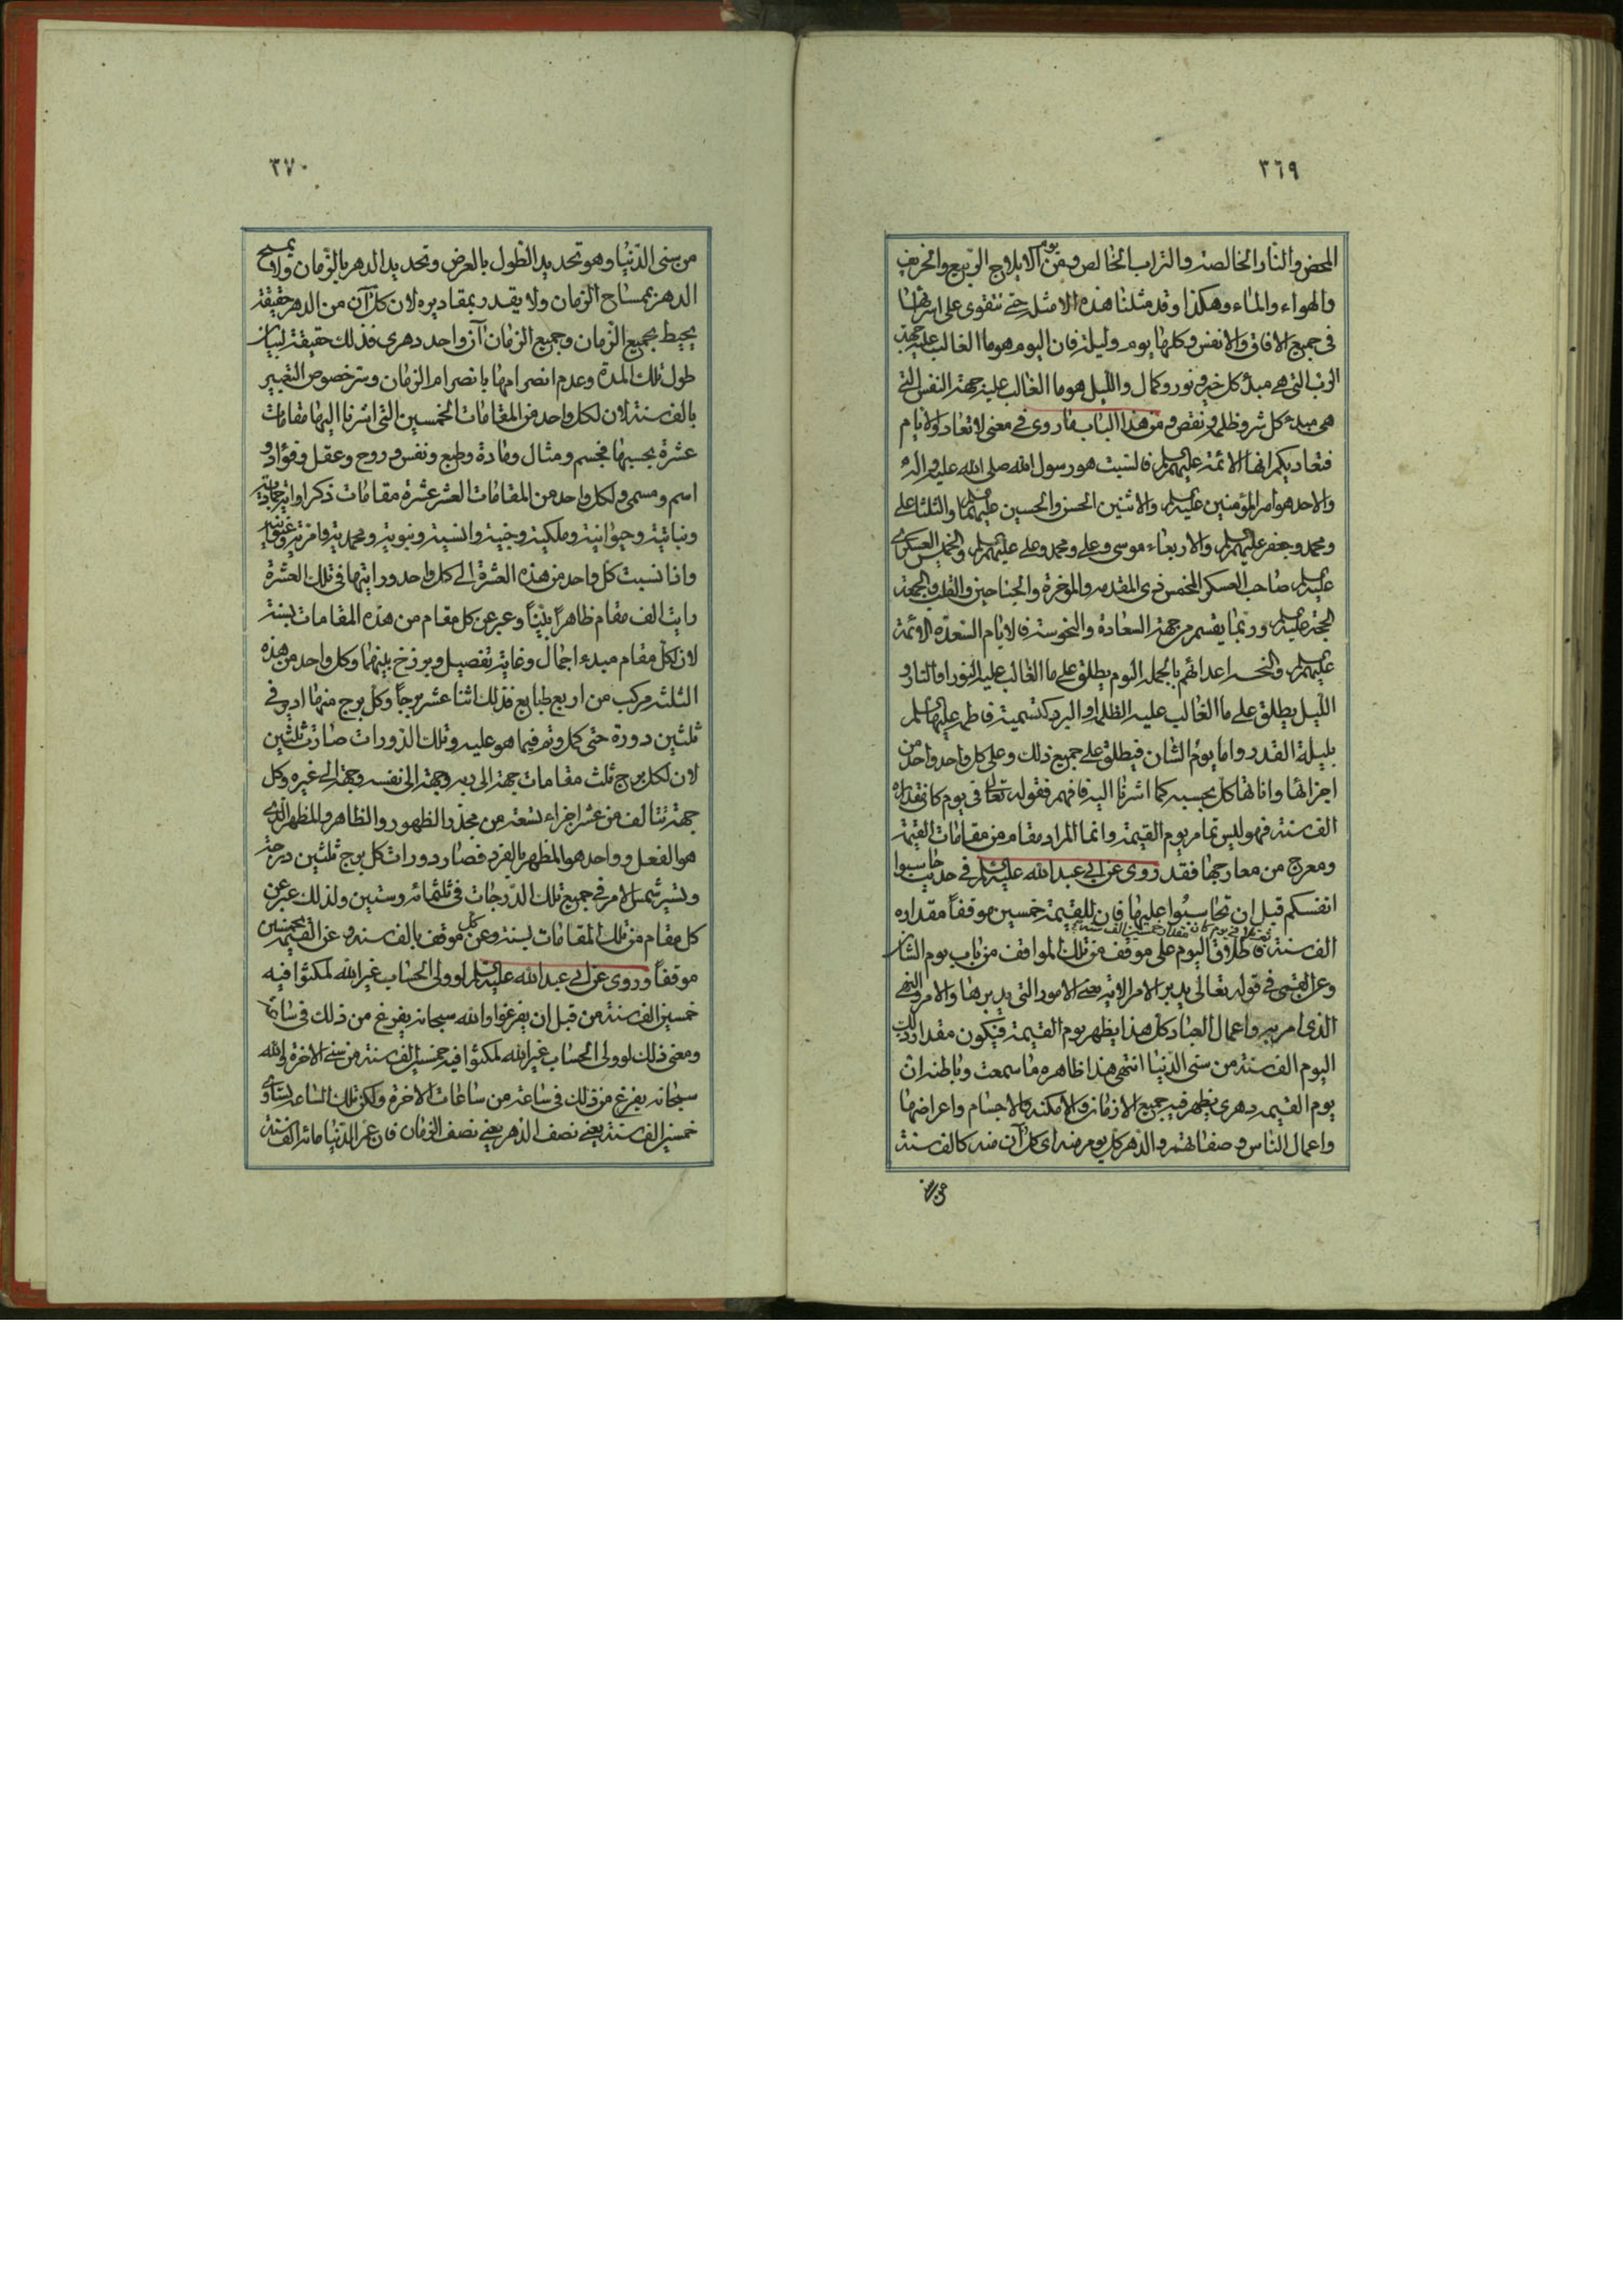 ٣٦٩
المحض والنار الخالصة والتراب الخالص ومن يوم الايلاج الربيع والخريف
والهواء والماء وهكذا وقد مثلنا هذه الامثلة حتى تتقوى على اجرائها
فى جميع الافاق والانفس وكلها يوم وليلة فان اليوم هو ما الغالب عليه جهة
الرب التى هى مبدء كل خير ونور وكمال والليل هو ما الغالب عليه جهة النفس التى
هى مبدء كل شر وظلمة ونقص ومن هذا الباب ما روى فى معنى لا تعادوا الايام
فتعاديكم انها الائمة عليهم السلم فالسبت هو رسول الله صلى الله عليه واله
والاحد هو امير المؤمنين عليه السلم والاثنين الحسن والحسين عليهما السلم والثلثا على
ومحمد وجعفر عليهم السلم والاربعاء موسى وعلى ومحمد وعلى عليهم السلم والخميس العسكرى
عليه السلم صاحب العسكر المخمس ذى المقدمة والمؤخرة والجناحين والقلب والجمعة
الحجة عليه السلم وربما يقسم من جهة السعادة والنحوسة فالايام السعدة الائمة
عليهم السلم والنحسة اعدائهم بالجملة اليوم يطلق على ما الغالب عليه النور او النار و
الليل يطلق على ما الغالب عليه الظلمة او البرد كتسمية فاطمة عليها السلم
بليلة القدر واما يوم الشان فيطلق على جميع ذلك وعلى كل واحد واحد من
اجزائها واناتها كل بحسبه كما اشرنا اليه فافهم فقوله تعالى فى يوم كان مقداره
الف سنة فهو ليس تمام يوم القيمة وانما المراد مقام من مقامات القيمة
ومعرج من معارجها فقد روى عن ابى عبد الله عليه السلم فى حديث حاسبوا
انفسكم قبل ان تحاسبوا عليها فان للقيمة خمسين موقفاً مقداره
الف سنة فاطلاق اليوم على موقف من تلك المواقف من باب يوم الشان
وعن القمى فى قوله تعالى يدبر الامر الاية يعنى الامور التى يدبرها والامر والنهى
الذى امر به واعمال العباد كل هذا يظهر يوم القيمة فيكون مقدار ذلك
اليوم الف سنة من سنى الدنيا انتهى هذا ظاهره ما سمعت وباطنه ان
يوم القيمة دهرى يظهر فيه جميع الازمان والامكنة والاجسام واعراضها
واعمال الناس وصفاتهم والدهر كل يوم منه اى كل آن منه كالف سنة
من سنى
٣٧٠
من سنى الدنيا وهو تحديد الطول بالعرض وتحديد الدهر بالزمان ولا يمسح
الدهر بمساح الزمان ولا يقدر بمقاديره لان كل آن من الدهر حقيقة
يحيط بجميع الزمان وجميع الزمان آن واحد دهرى فذلك حقيقة لبيان
طول تلك المدة وعدم انصرامها بانصرام الزمان وسر خصوص التعبير
بالف سنة لان لكل واحد من المقامات الخمسين التى اشرنا اليها مقامات
عشرة بحسبها فجسم ومثال ومادة وطبع ونفس وروح وعقل وفؤاد و
اسم ومسمى ولكل واحد من المقامات العشر عشرة مقامات ذكراوانية جمادية
ونباتية وحيوانية وملكية وجنية وانسية ونبوية ومحمدية وامرية
وانا نسبت كل واحد من هذه العشرة الى كل واحد ورايتها فى تلك العشرة
رايت الف مقام ظاهراً بيناً وعبر عن كل مقام من هذه المقامات بسنة
لان لكل مقام مبدء اجمال وغاية تفصيل وبرزخ بينهما وكل واحد من هذه
الثلثة مركب من اربع طبايع فذلك اثنا عشر برجاً وكل برج منها ادير فى
ثلثين دورة حتى كمل وتم فيما هو عليه وتلك الدورات صارت ثلثين
لان لكل برج ثلث مقامات جهة الى ربه وجهة الى نفسه وجهة الى غيره وكل
جهة تتالف من عشر اجزاء تسعة من محدد الظهور والظاهر والمظهر الذى
هو الفعل وواحد هو المظهر بالفرد فصار دورات كل برج ثلثين درجة
وتسير شمس الامر فى جميع تلك الدرجات فى ثلثمائة وستين ولذلك عبر عن
كل مقام من تلك المقامات بسنة وعن كل موقف بالف سنة وعن القيمة بخمسين
موقفاً وروى عن ابى عبد الله عليه السلم لو ولى الحساب غير الله لمكثوا فيه
خمسين الف سنة من قبل ان يفرغوا والله سبحانه يفرغ من ذلك فى ساعة
ومعنى ذلك لو ولى الحساب غير الله لمكثوا فيه خمسين الف سنة من سنى الاخرة والله
سبحانه يفرغ من ذلك فى ساعة من ساعات الاخرة ولكن تلك الساعة تساوى
خمسين الف سنة يعنى نصف الدهر يعنى نصف الزمان فان عمر الدنيا مائة الف سنة